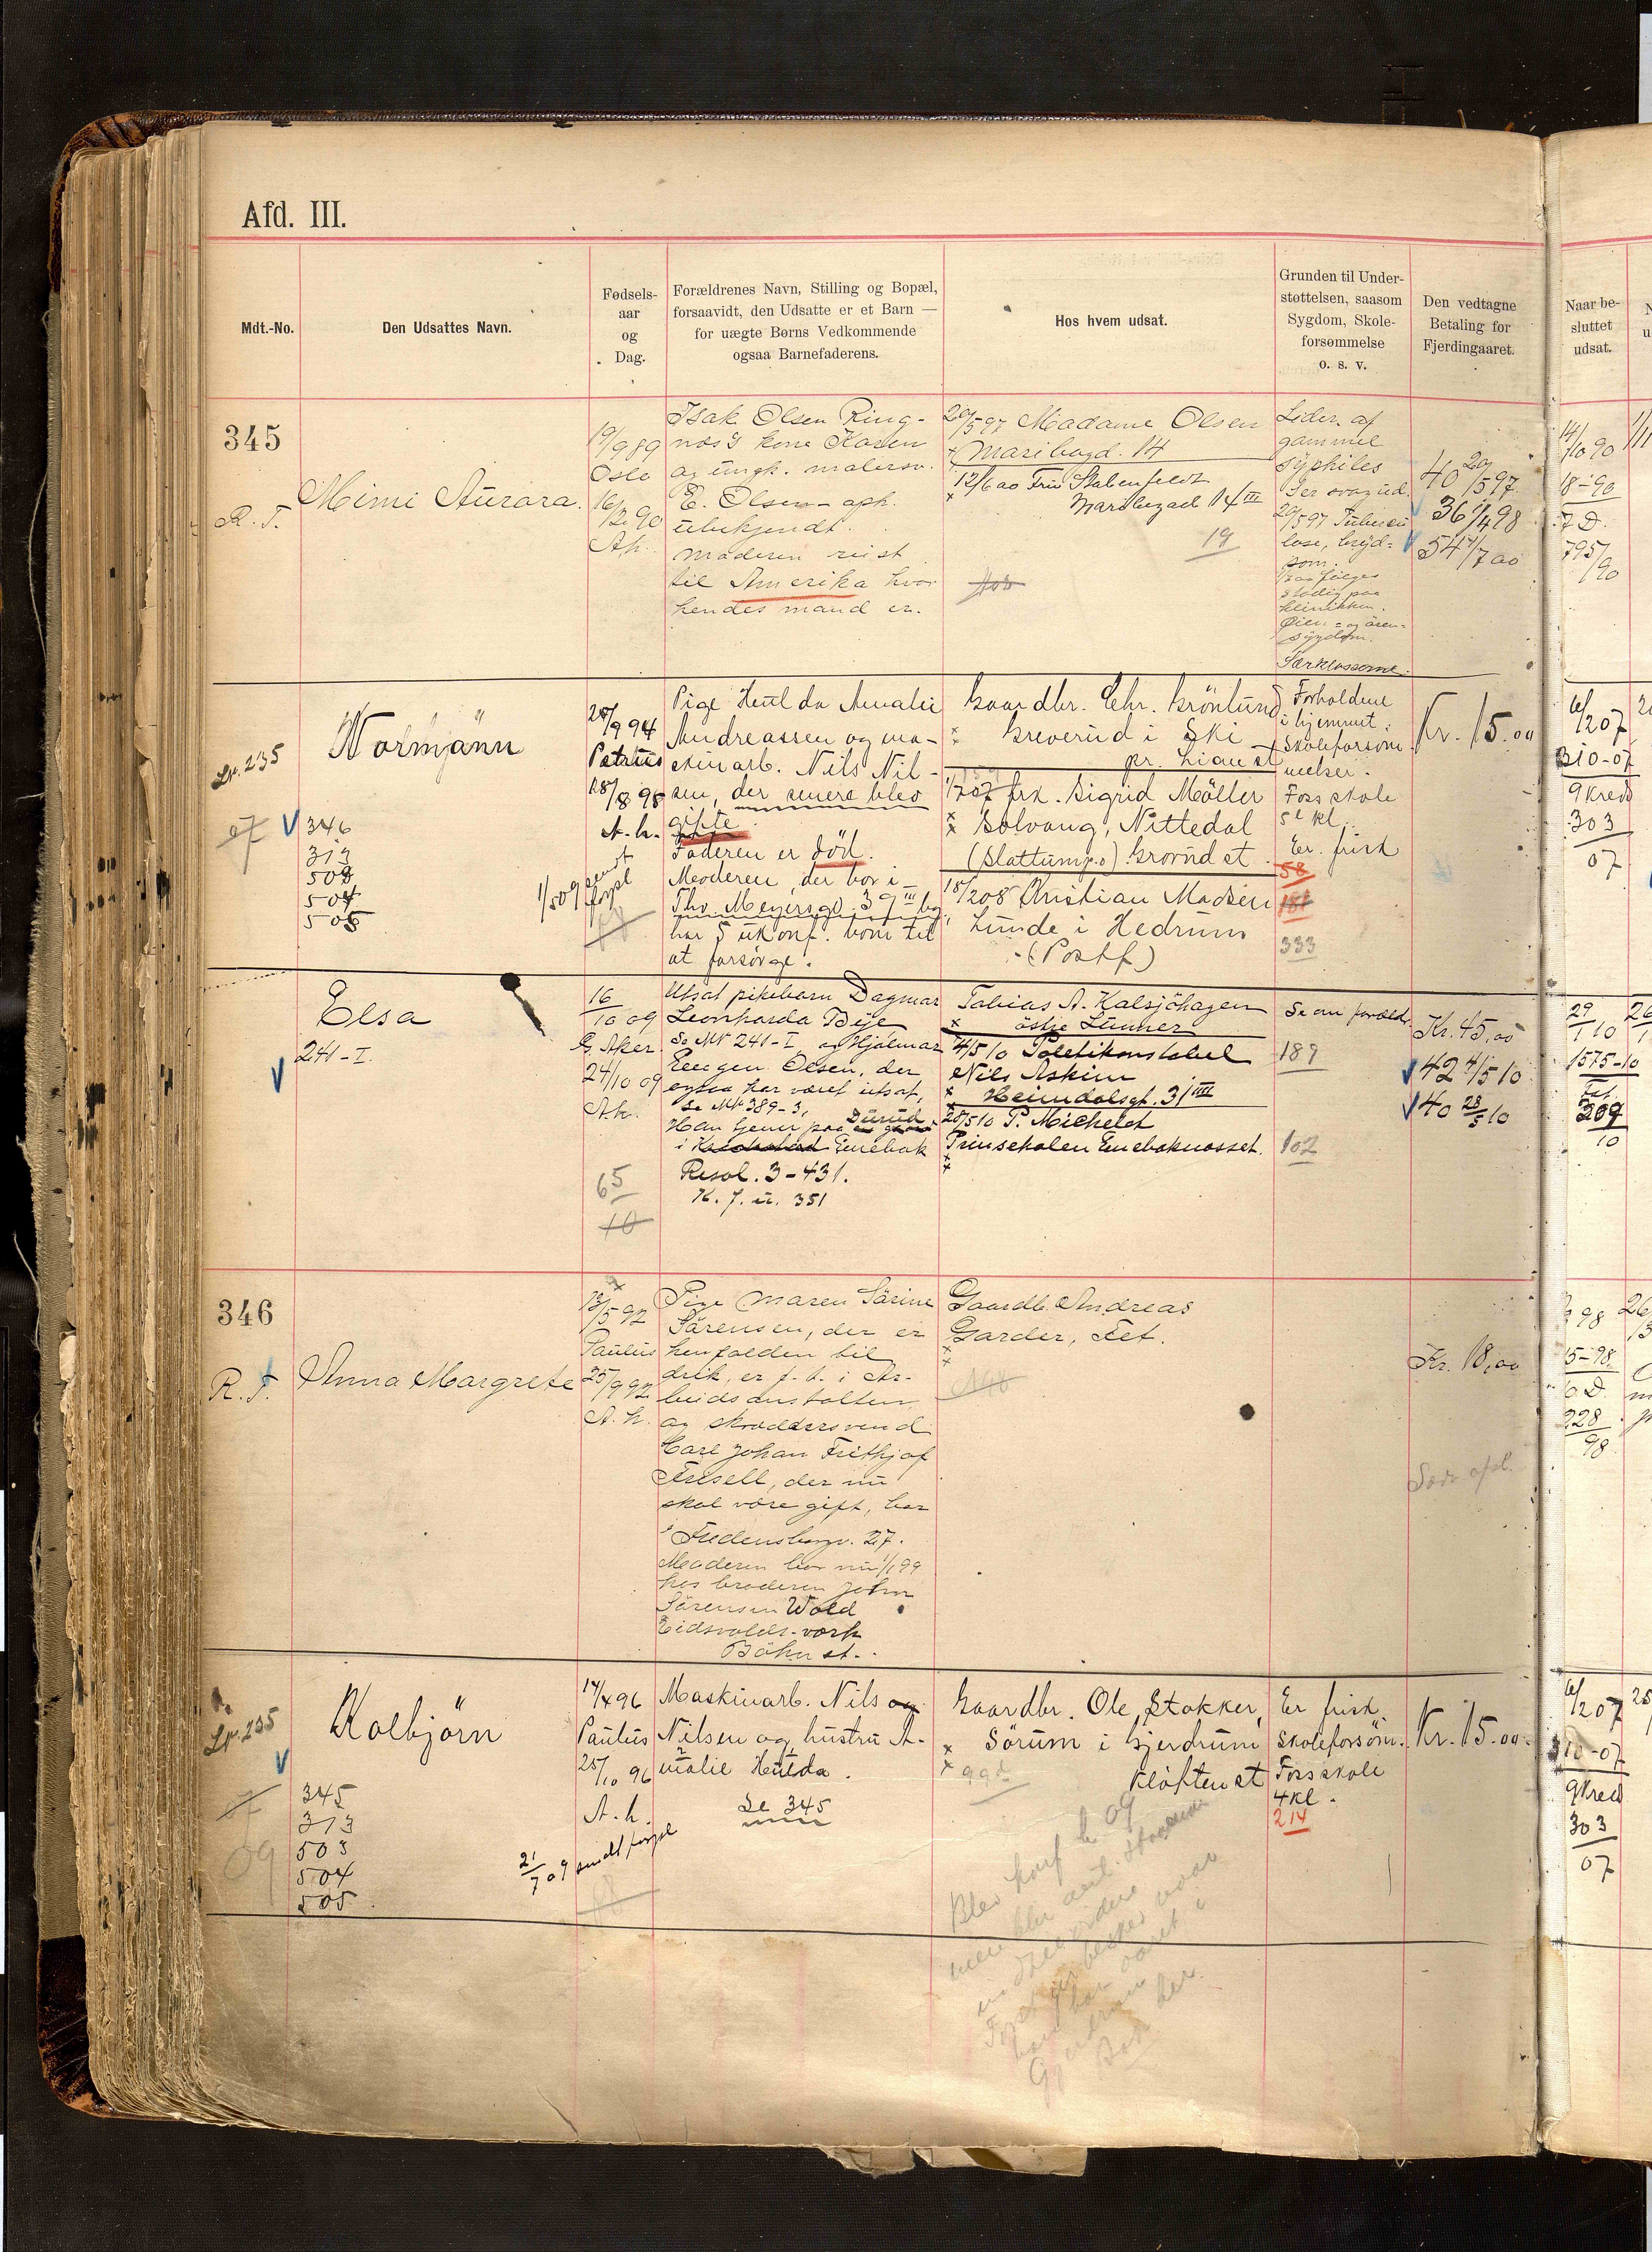 Afd. III.
Mdt.-No.
Den Udsattes Navn.
Fødsels-
aar
og
Dag.
Forældrenes Navn, Stilling og Bopæl,
forsaavidt, den Udsatte er et Barn —
for uægte Børns Vedkommende
ogsaa Barnefaderens.
Hos hvem udsat.
Grunden til Under-
støttelsen, saasom
Sygdom, Skole-
forsømmelse
o. s. v.
Den vedtagne
Betaling for
Fjerdingaaret.
Naar be-
sluttet
udsat.
345
R. T.
Mimi Aurora.
19/9 89
Oslo
16/2 90
A.h.
Isak Olsen Ring-
næs's kone Karen
og ungk. malersv.
E. Olsen - oph.
ubekjendt.
Moderen reist
til Amerika hvor
hendes mand er.
20/5 97 Madame Olsen
Maribogd. 14
12/6 00 Fru Stabenfeldt
Maribogad 14 III
19
Lider af
gammel
syphiles
Ser svag ud.
20/5 97 Tuberku
lose, bryd-
som.
stadig paa
klinikken.
Øien- og ören-
sygdom.
Særklasserne.
40 20/5 97
36 1/4 98
54 1/7 00
14/10 90
18-90
7 D.
795/90
Lr. 235
Normann
07 346
313
503
504
505
28/9 94
Petrus
28/8 98
A.h.
1/5 09 sendt forpl
Pige Hulda Amalie
Andreassen og ma-
skinarb. Nils Nil-
sen, der senere blev
gifte.
Faderen er død.
Moderen, der bor i
Thv. Meyersgd. 39 III bg
har 5 ukonf. børn til
at forsörge.
Gaardbr. Chr. Grönlund
Greverud i Ski
pr. Lian st
1/7 07 frk. Sigrid Möller
Solvang, Nittedal
(Slattum p.o) Grorud st.
18/2 08 Kristian Madsen
Lunde i Hedrum
(Postf)
Forholdene
i hjemmet.
Skoleforsöm
melser.
Foss skole
5te kl.
Er frisk
58
181
333
Kr. 15.00
6/2 07
310-07
9 Kred
303
07
Elsa
241-I.
16/10 09
G. Aker
24/10 09
A.h.
65
10
Utsat pikebarn Dagmar
Leonharda Bye
Se No 241-I og Hjalmar
Eugen Olsen, der
ogsaa har været utsat,
se No 389-3,
Han tjener paa Durud
i Enebak
Resol. 3-431.
K. J. u. 351
Tobias A. Kalsjöhagen
östre Lunner
4/5 10 Politikonstabel
Nils Askim
Heimdalsgt. 31 III
28/5 10 P. Michelet
Prinsekolen Enebaknesset.
Se om foræld.
189
102
Kr. 45,00
42 4/5 10
40 28/5 10
29/1 10
1575-10
209
10
346
R. T.
Anna Margrete
13/5 92
Paulus
25/9 92
A. h.
Pige Maren Sörine
Sörensen, der er
henfalden til
drik, er f. t. i Ar-
beidsanstalten
og skræddersvend
Carl Johan Frithjof
Frisell, der nu
skal være gift, bor
i Fredensborgv. 27.
Moderen bor nu 1/1 99
hos broderen John
Sörensen Wold
Eidsvolds-værk
Böhn st.
Gaardb. Andreas
Garder, Fet.
Kr. 18,00
98
15-98.
6 D.
228
98
Lr. 235
Kolbjörn
345
313
503
504
505
09
14/4 96
Paulus
25/10 96
A.h.
21/7 09 sendt forpl
Maskinarb. Nils
Nilsen og hustru A-
malie Hulda.
Se 345
Gaardbr. Ole Stokker,
Sörum i Gjerdrum
Klöften st
Blev konf h 09
Er frisk.
Skoleforsöm.
Foss skole
4 kl.
214
Kr. 15.00.
6/2 07
310-07
9 Kred
303
07